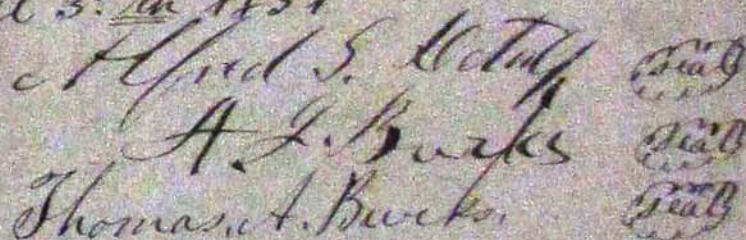 Alfred S. (Seal)
A. J. Burks (Seal)
Thomas. A. Burks. (Seal)